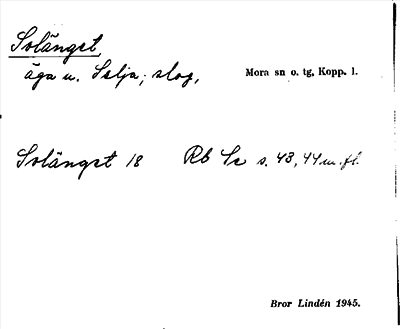 Solänget
äga u. Selja; slog, Mora sn o. tg, Kopp. l.
Solänget 18 Rb Sc s. 43, 44 m. fl.
Bror Lindén 1945.